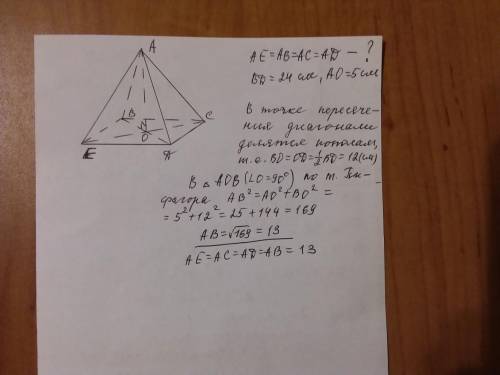 A
B
C
O
E
D
AE=AB=AC=AD – ?
BD=24 см, AO=5 см
В точке пересече-
ния диагонали
делятся пополам,
т.е. BO=OD=½BD=12(см)
В △ AOB (∠O=90°) по т. Пи-
фагора AB²=AO²+BO²=
=5²+12²=25+144=169
AB=√169=13
AE=AC=AD=AB=13